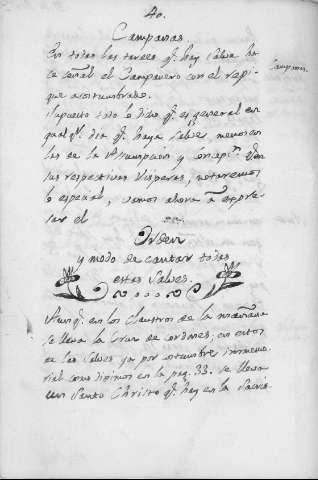 40.
Campanas
En todas las tardes q.e hay Salve ha-
ce señal el Campanero con el repi-
que acostumbrado.
Campanas.
Supuesto todo lo dicho q.e es general en
qualq.a dia q.e haya Salve, menos con
las de la Assumpcion y Concep.n en
sus respectivas Visperas, notaremos
lo especial, vamos ahora a expre-
sar el
Orden
y modo de cantar todas
estas Salves.
Aunq.e en los Claustros de la mañana
se lleva la Cruz de cordones; en estos
de las Salves ya por costumbre inmemo-
rial como digimos en la pag. 33. se lleva
un Santo Christo q.e hay en la Sacris-